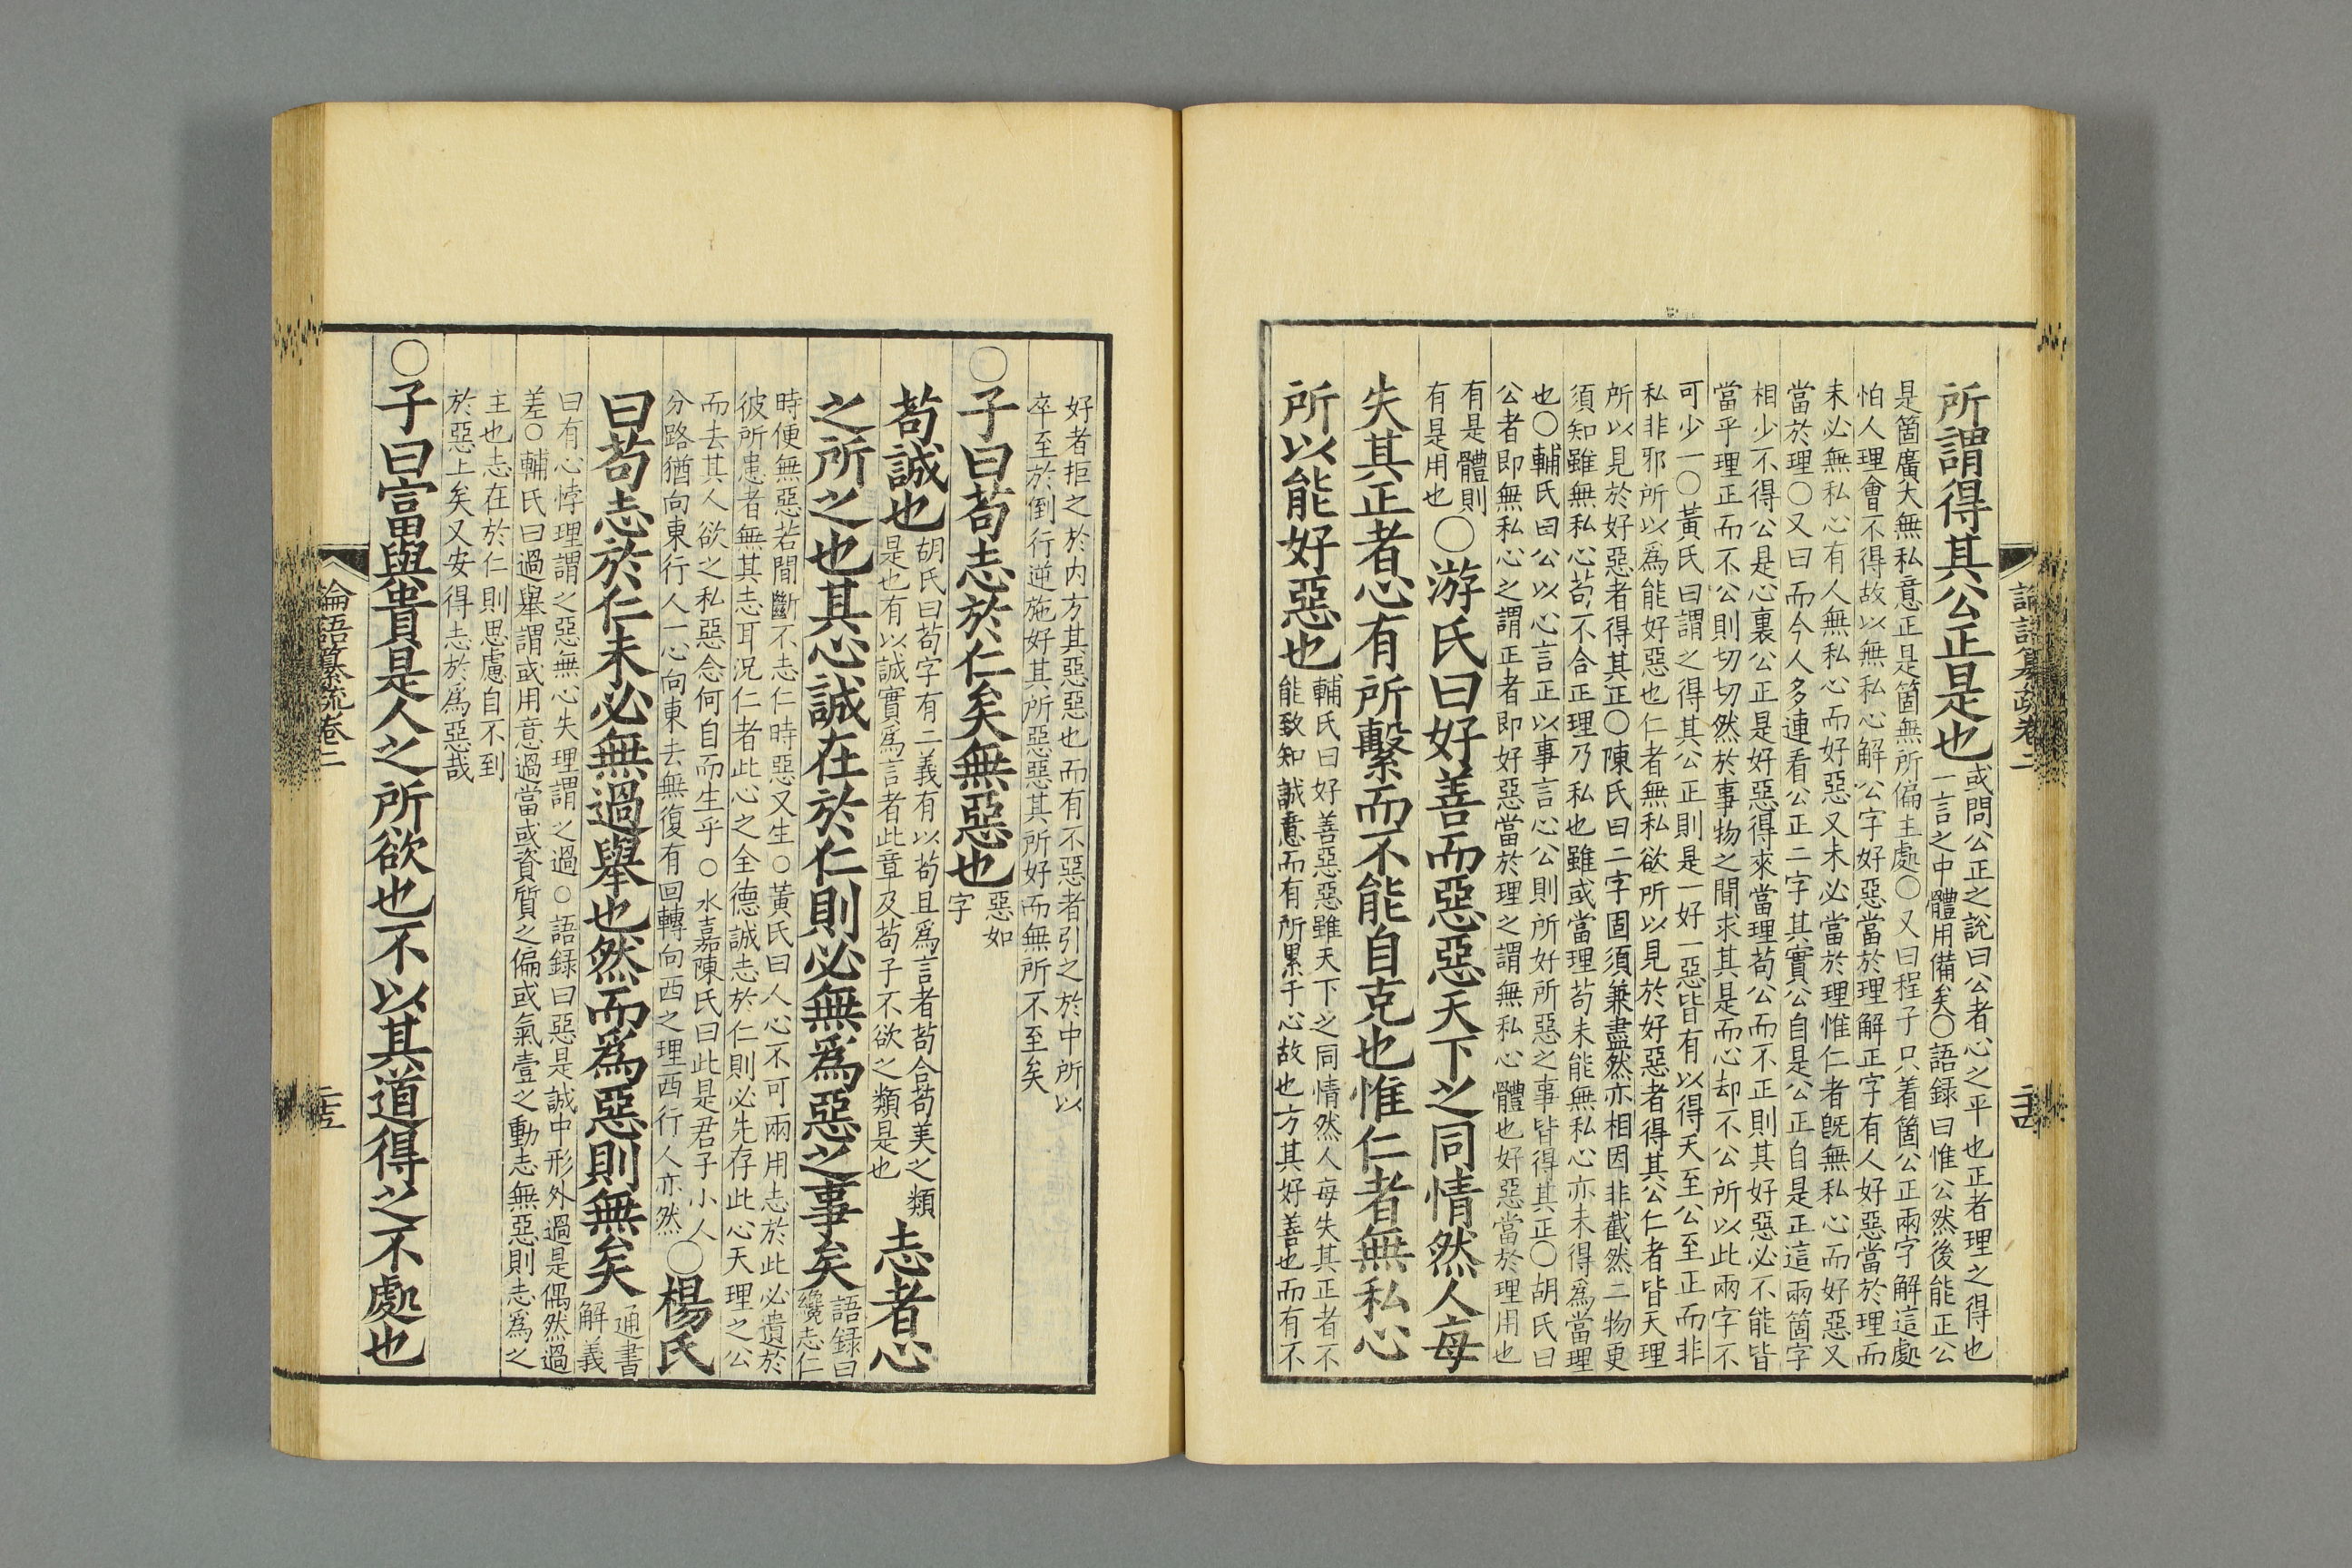 論語纂疏卷二
二十四
所謂得其公正是也
或問公正之說曰公者心之平也正者理之得也
一言之中體用備矣○語録曰惟公然後能正公
是箇廣大無私意正是箇無所偏主處○又曰程子只着箇公正兩字解這處
怕人理會不得故以無私心解公字好惡當於理解正字有人好惡當於理而
未必無私心有人無私心而好惡又未必當於理惟仁者旣無私心而好惡又
當於理○又曰而今人多連看公正二字其實公自是公正自是正這兩箇字
相少不得公是心裏公正是好惡得來當理苟公而不正則其好惡必不能皆
當乎理正而不公則切切然於事物之間求其是而心却不公所以此兩字不
可少一○黃氏曰謂之得其公正則是一好一惡皆有以得天至公至正而非
私非邪所以爲能好惡也仁者無私欲所以見於好惡者得其公仁者皆天理
所以見於好惡者得其正○陳氏曰二字固須兼盡然亦相因非截然二物更
須知雖無私心苟不合正理乃私也雖或當理苟未能無私心亦未得爲當理
也○輔氏曰公以心言正以事言心公則所好所惡之事皆得其正○胡氏曰
公者即無私心之謂正者即好惡當於理之謂無私心體也好惡當於理用也
有是體則
有是用也
○游氏曰好善而惡惡天下之同情然人每
失其正者心有所繫而不能自克也惟仁者無私心
所以能好惡也
輔氏曰好善惡惡雖天下之同情然人每失其正者不
能致知誠意而有所累于心故也方其好善也而有不
好者拒之於内方其惡惡也而有不惡者引之於中所以
卒至於倒行逆施好其所惡惡其所好而無所不至矣
○子曰苟志於仁矣無惡也
惡如
字
苟誠也
胡氏曰苟字有二義有以苟且爲言者苟合苟美之類
是也有以誠實爲言者此章及苟子不欲之類是也
志者心
之所之也其心誠在於仁則必無爲惡之事矣
語録曰
纔志仁
時便無惡若間斷不志仁時惡又生○黃氏曰人心不可兩用志於此必遺於
彼所患者無其志耳況仁者此心之全德誠志於仁則必先存此心天理之公
而去其人欲之私惡念何自而生乎○永嘉陳氏曰此是君子小人
分路猶向東行人一心向東去無復有回轉向西之理西行人亦然
○楊氏
曰苟志於仁未必無過舉也然而爲惡則無矣
通書
解義
曰有心悖理謂之惡無心失理謂之過○語録曰惡是誠中形外過是偶然過
差○輔氏曰過舉謂或用意過當或資質之偏或氣壹之動志無惡則志爲之
主也志在於仁則思慮自不到
於惡上矣又安得志於爲惡哉
○子曰富與貴是人之所欲也不以其道得之不處也
論語纂疏卷二
二十五